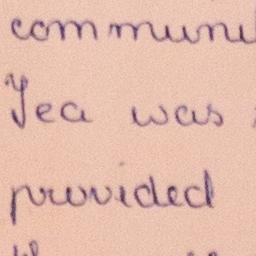 communi
Tea was
provided